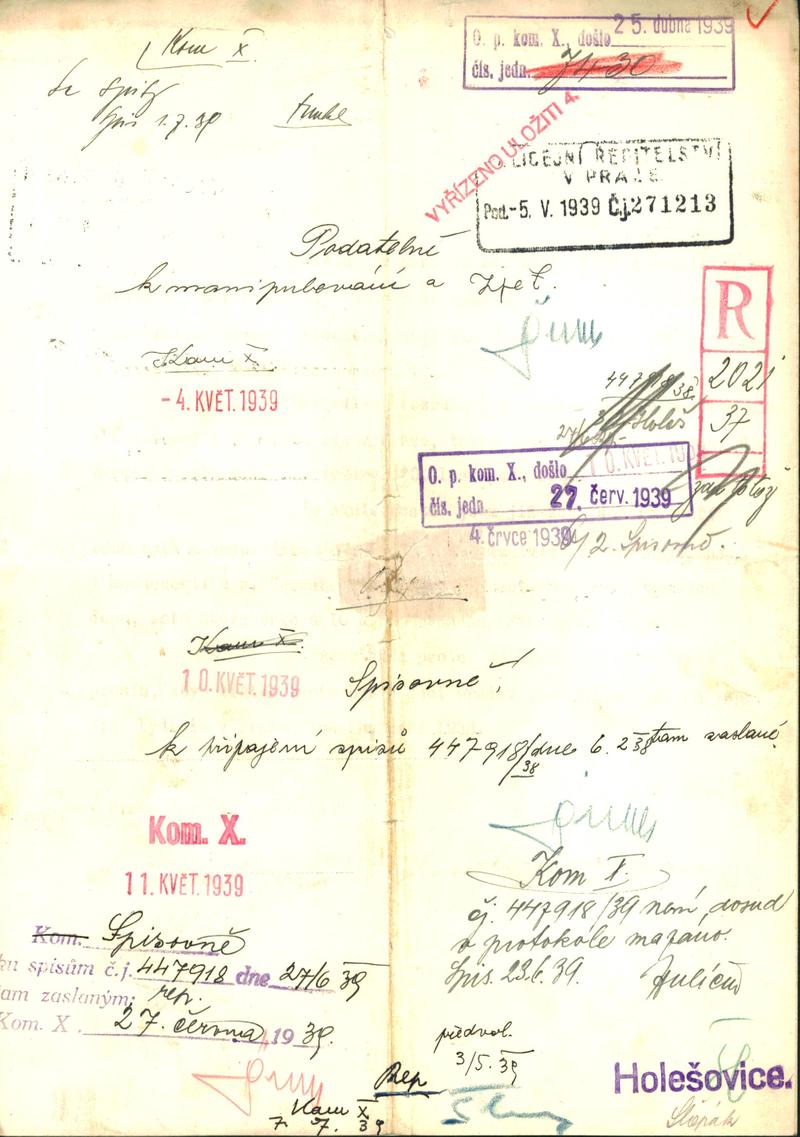 Kom X.
25. dubna 1939
O. p. kom. X., došlo
čís. jedn. 7430
1.7.39
VYŘÍZENO ULOŽITI 4.
POLICEJNÍ ŘEDITELSTVÍ
V PRAZE
Pod. -5. V. 1939 Čj. 271213
Podatelně
k manipulování a zpět.
R
2021
37
Kom X.
-4. KVĚT. 1939
447918/38
10. KVĚT. 19
O. p. kom. X., došlo
čís. jedn. 27. červ. 1939
4. črvce 1939
Spisovně.
Kom X.
10. KVĚT. 1939
Spisovně,
k připojení spisů 447918/38 dne 6. 2 38 tam zaslané.
Kom. X.
11. KVĚT. 1939
Kom X.
čj. 447918/39 není dosud
v protokole mazano.
Spis. 23.6.39.
Kom. Spisovně
ku spisům č.j. 447918 dne 27/6 39
tam zaslaným; rep.
Kom X. 27. června 1939.
předvol.
3/5. 39
Rep
Kom X
7. 7. 39
Holešovice.